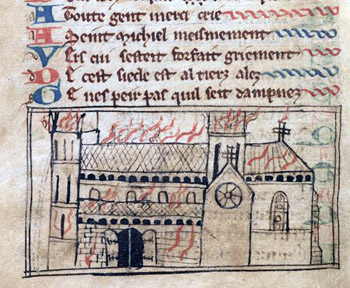 A toute gent merci crie
A Seint Michiel meismement
Vers cui sesteit forfait griement
D icest siecle est al tierz alez
Ge nespeir pas quil seit dampnez